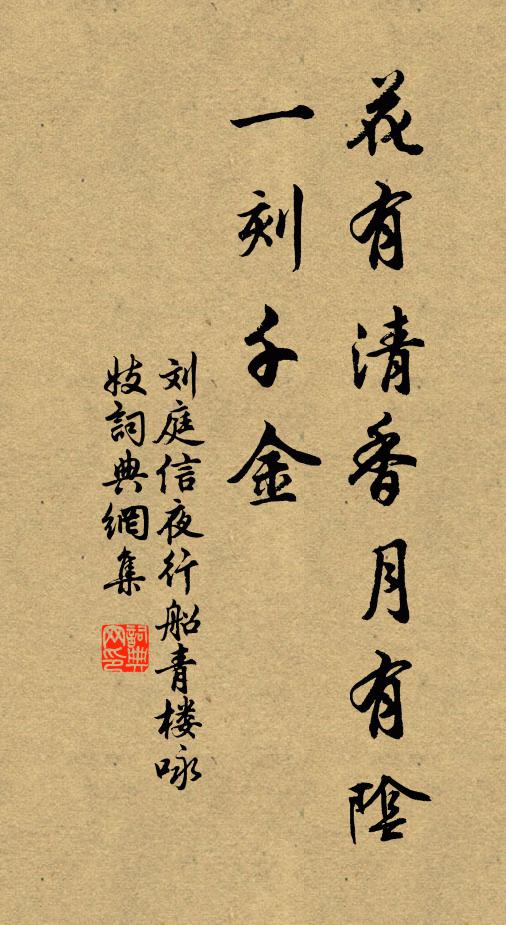 花有清香月有陰
一刻千金
刘庭信夜行船青楼咏
妓詞典網集
詞典
网印